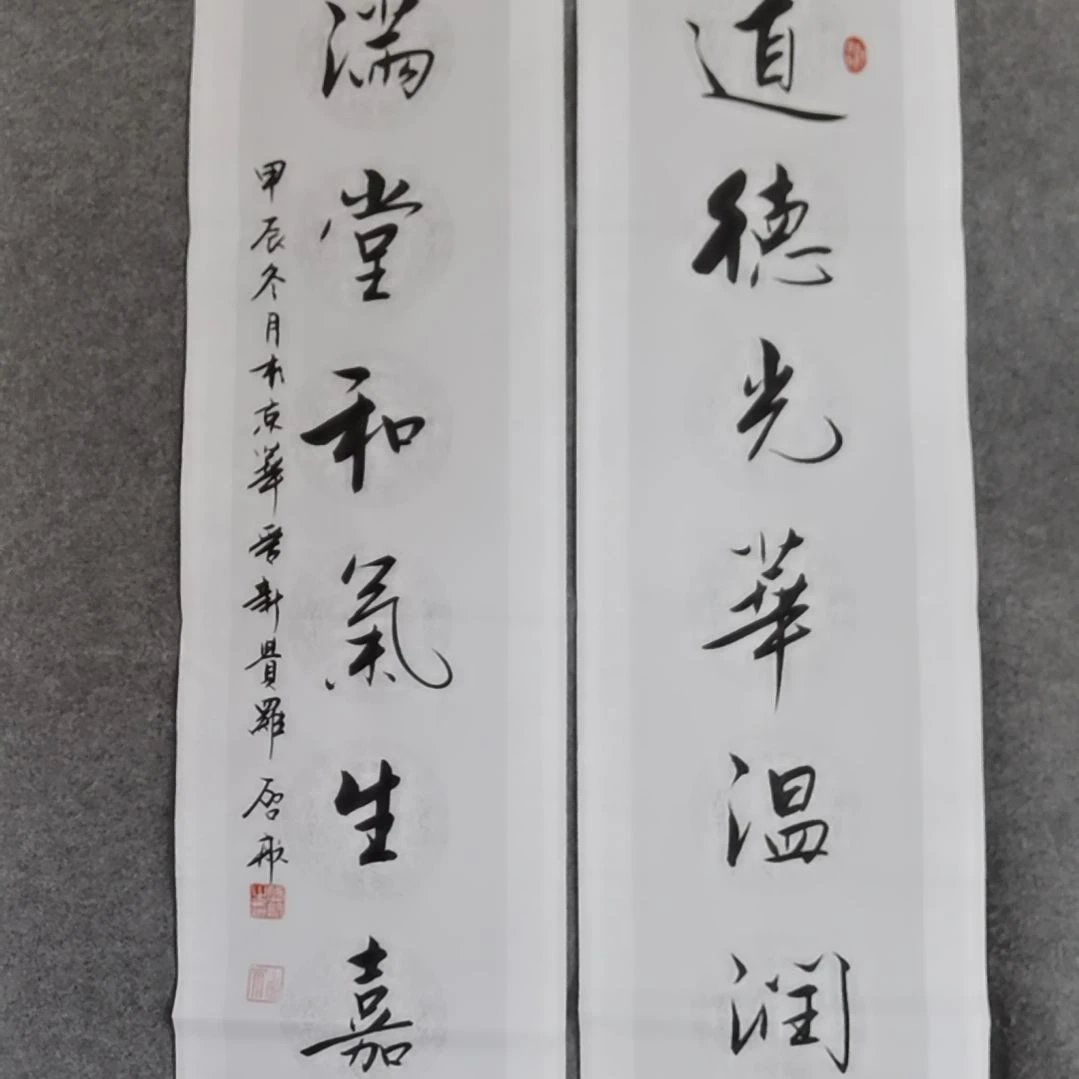 道德光華温潤
滿堂和氣生嘉
甲辰冬月於京華晉新貴羅啓